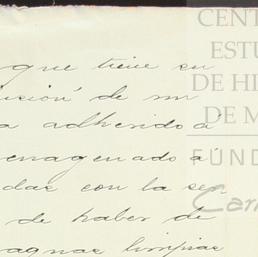 que tiene su
lusión de mi
a adherido á
enagenado á
das con la se
de haber de
agnas limpias
CENT
ESTU
DE HI
DE M
FUND
Car